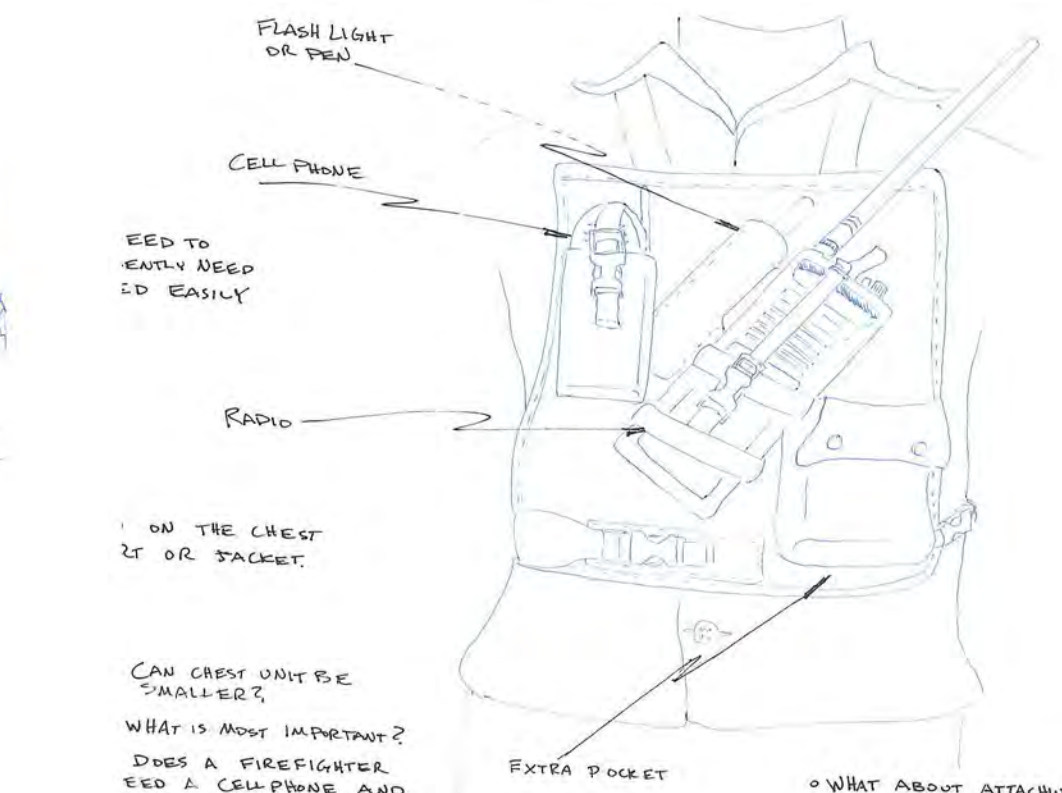 FLASH LIGHT
OR PEN
CELL PHONE
EED TO
ENTLY NEED
ED EASILY
RADIO
ON THE CHEST
RT OR JACKET.
CAN CHEST UNIT BE
SMALLER?
WHAT IS MOST IMPORTANT?
DOES A FIREFIGHTER
EED A CELLPHONE AND
EXTRA POCKET
° WHAT ABOUT